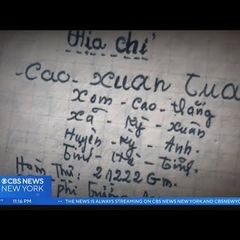 Địa chỉ
Cao-xuân Tua
Xom-Cao-thắng
Xã Kỳ-xuân
Huyện-Kỳ-Anh-
Tỉnh-Hà-Tĩnh.
Hòm Thư: 21222 Gm.
CBS NEWS
NEW YORK
11:16 PM
THE NEWS IS ALWAYS STREAMING ON CBS NEWS NEW YORK AND CBSNEWYO